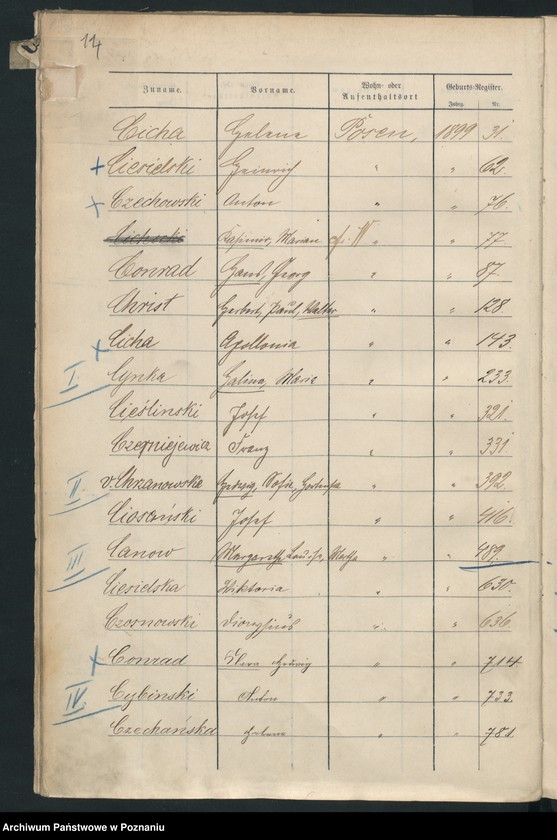 14
Zuname. Vorname. Wohn- oder Aufenthaltsort Geburts-Register.
Jahrg. Nr.
Cicha Helene Posen, 1899 31.
+ Ciesielski Heinrich " " 62.
+ Czechowski Anton " " 76.
Kasimir, Marian " " 77.
Conrad Hans, Georg " " 87.
Christ Herbert, Paul, Walter " " 128.
+ Cicha Apollonia " " 143.
I. Cynka Halina, Marie " " 233.
Cieślinski Josef " " 321.
Czerniejewicz Franz " " 331.
II. v. Chrzanowska Hedwig, Sofie, " " 392.
Ciosański Josef " " 416.
III Canow Margarethe, Louise, Martha " " 489.
Ciesielska Viktoria " " 630.
Czosnowski Dionysius " " 636.
+ Conrad Hedwig " " 714
IV. Cybinski Anton " " 733.
Czechańska Helene " " 781.
Archiwum Państwowe w Poznaniu